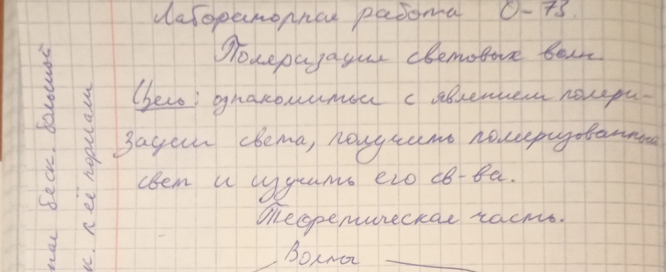 Лабораторная работа О-73.
Поляризация световых волн
Цель: ознакомиться с явлением поляри-
зации света, получить поляризованный
свет и изучить его св-ва.
Теоретическая часть.
Волны
беск. большой
к. к её нормали